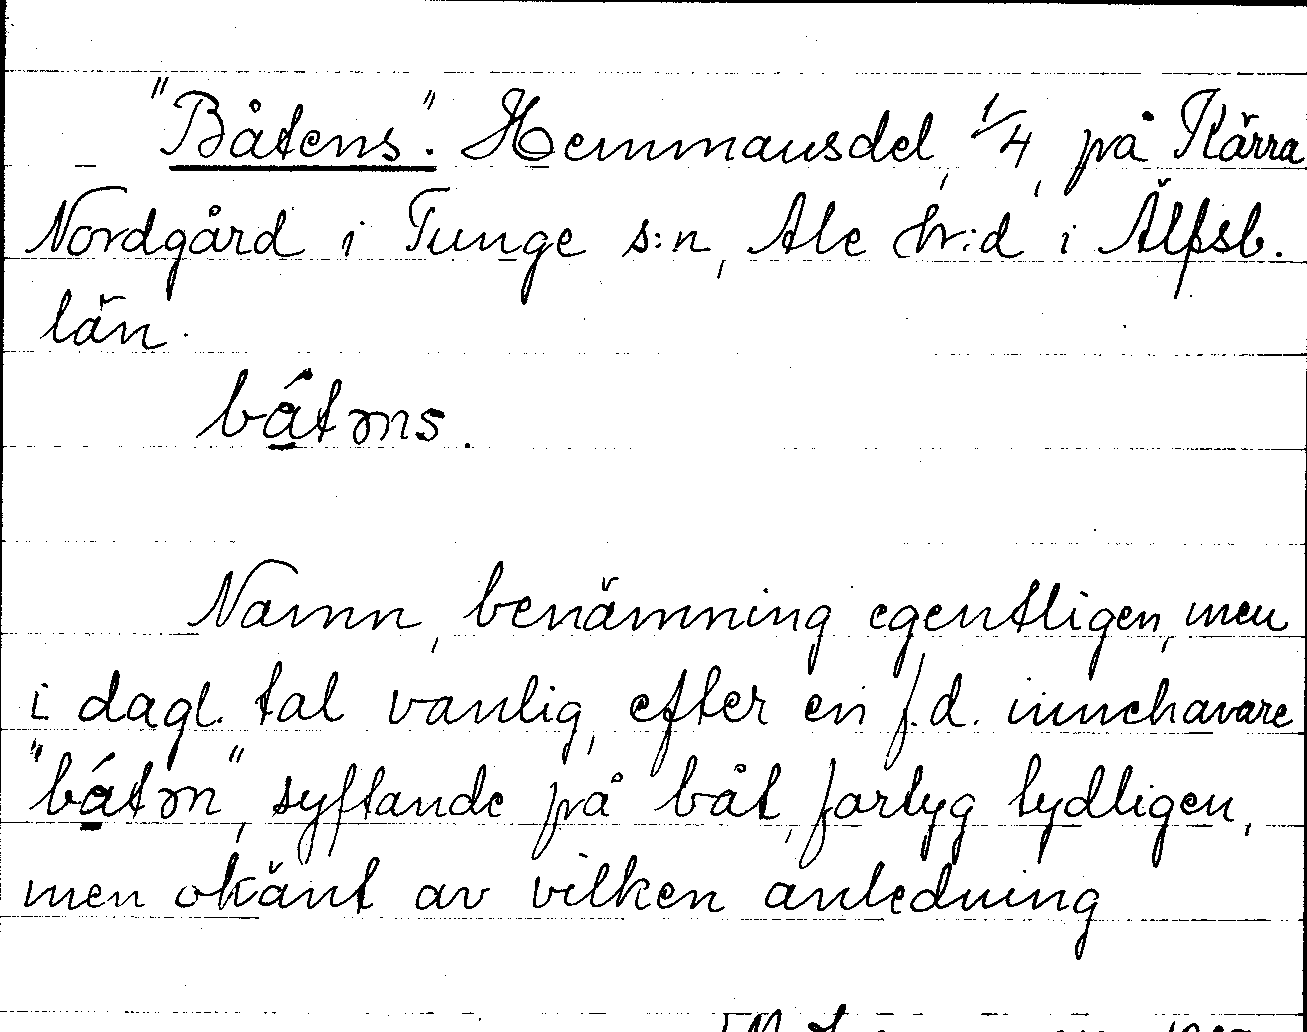 "Båtens". Hemmansdel, 1/4, på Kärra
Nordgård i Tunge s:n, Ale hr:d i Älfsb.
län.
bá̱təns.
Namn, benämning egentligen, men
i dagl. tal vanlig, efter en f.d. innehavare
"bá̱tən", syftande på båt, fartyg tydligen,
men okänt av vilken anledning